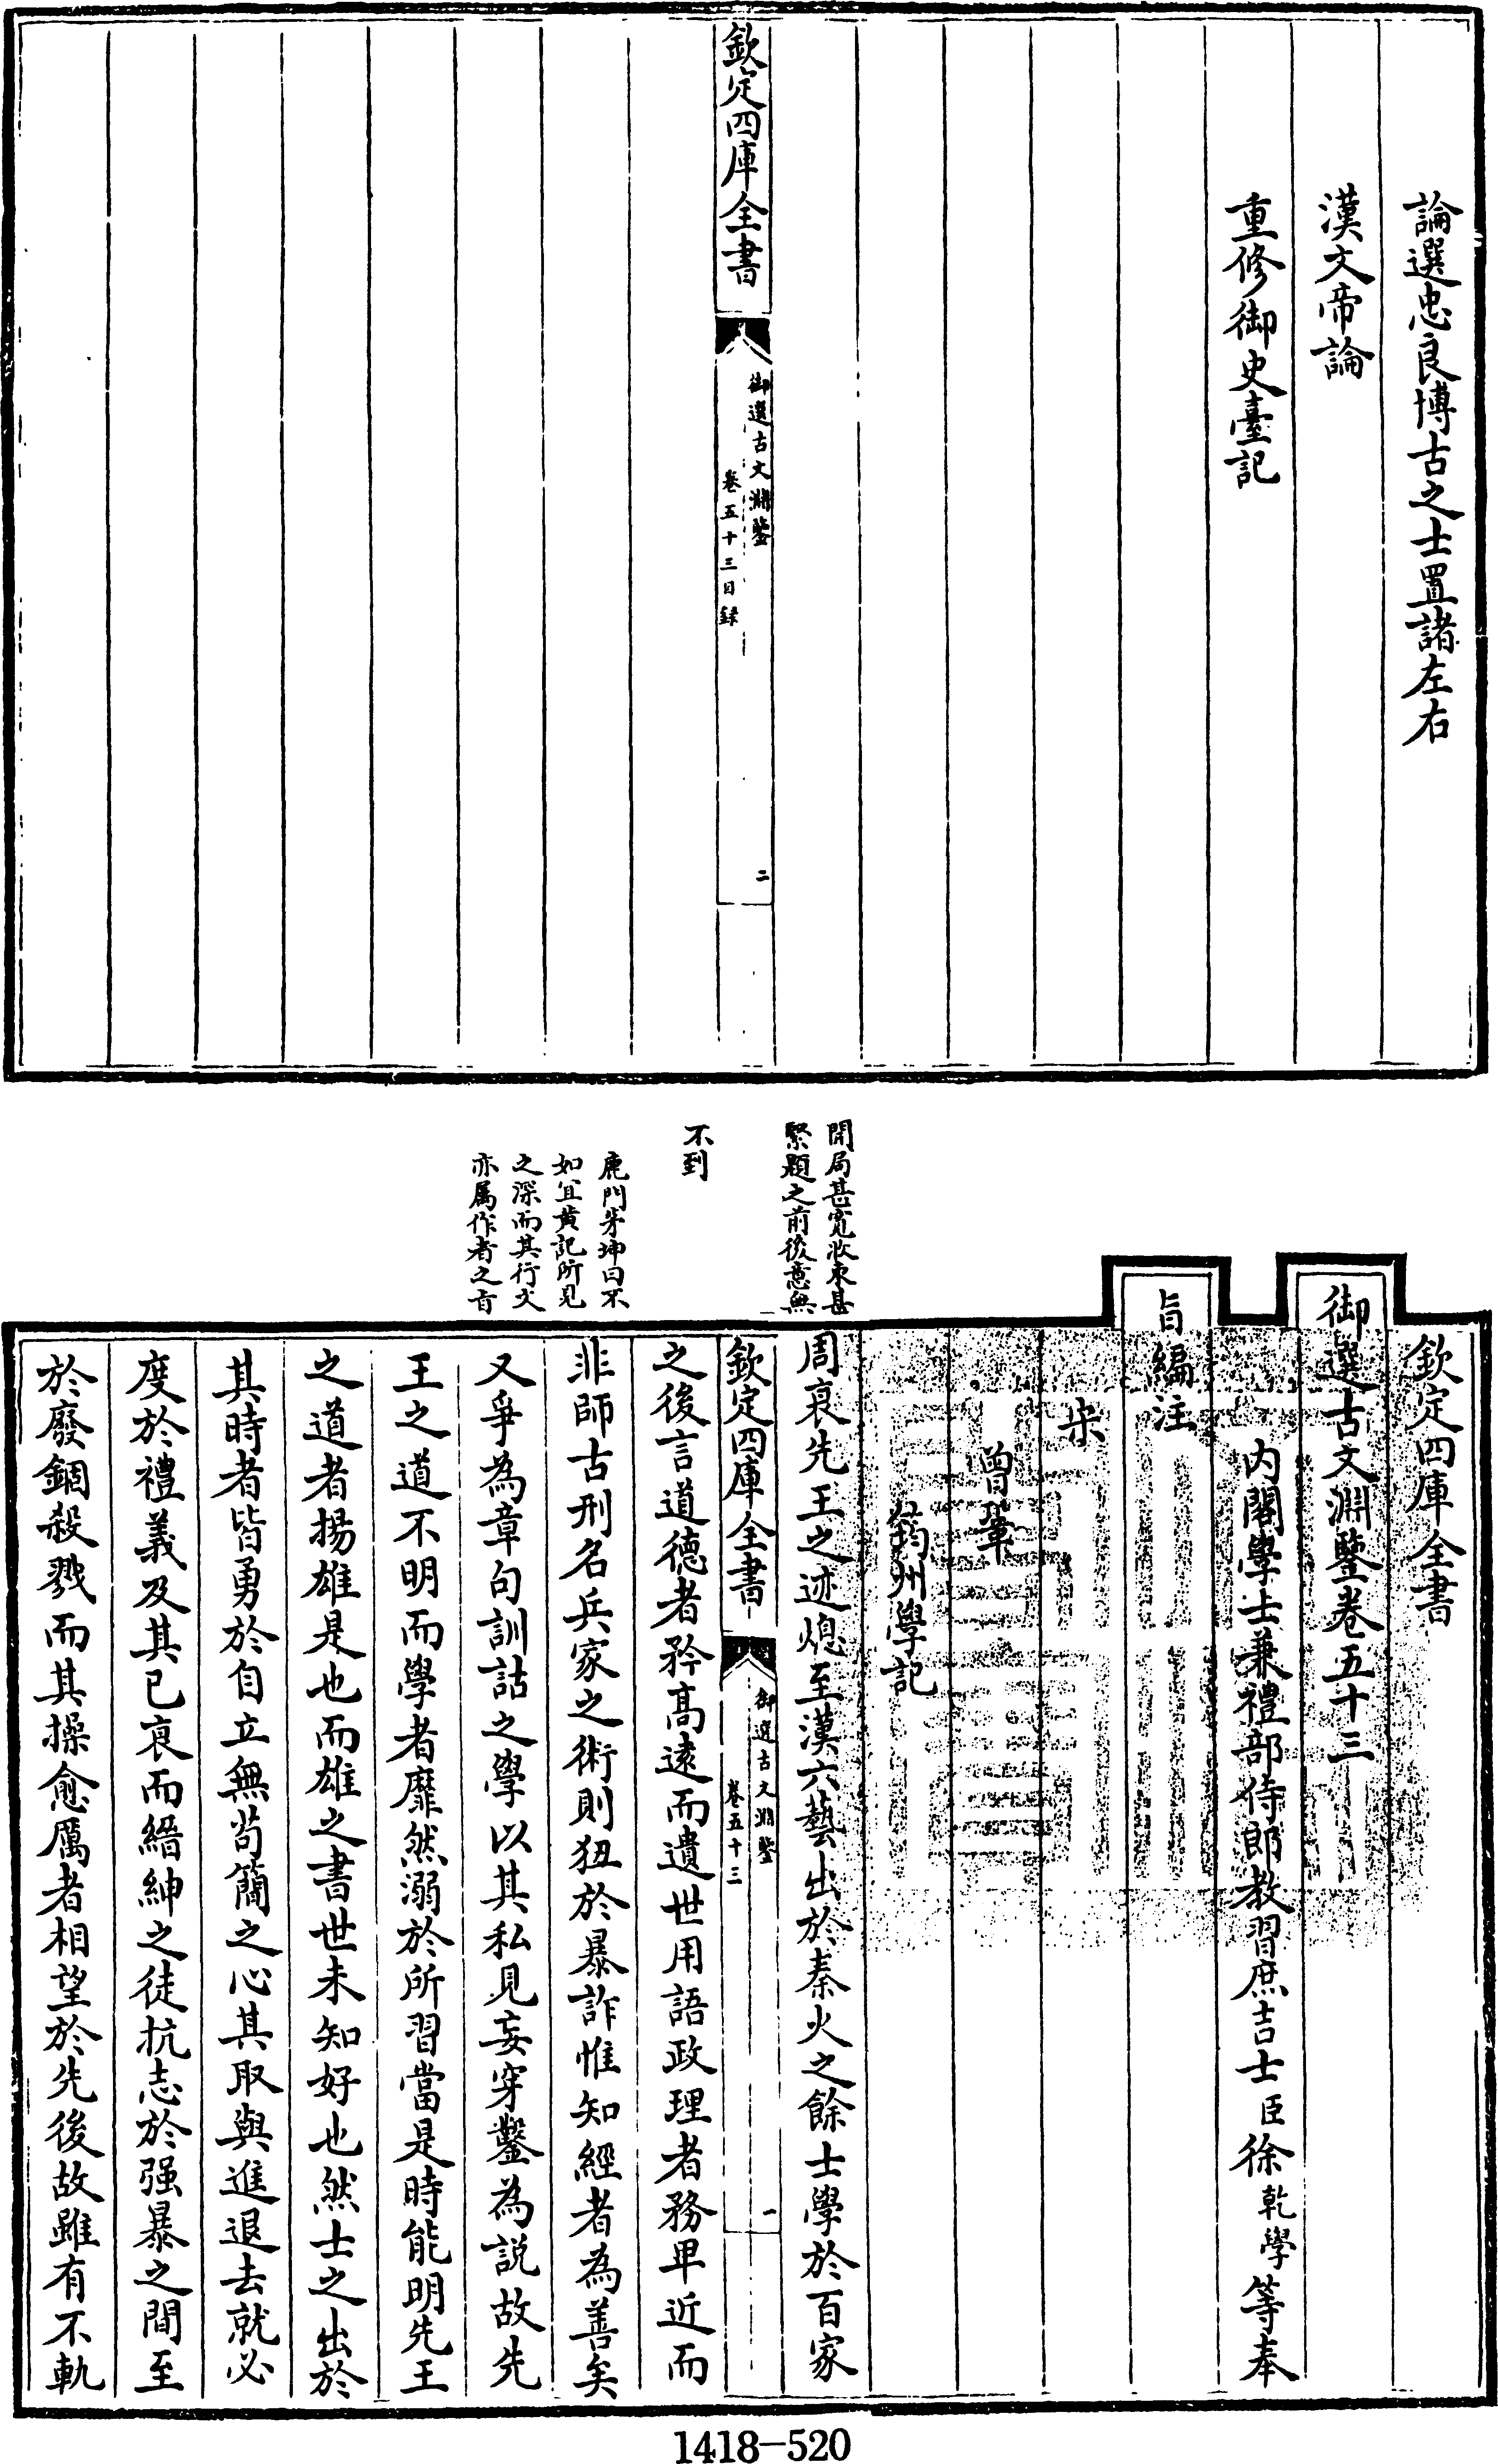 論選忠良博古之士置諸左右
漢文帝論
重修御史臺記
欽定四庫全書
御選古文淵鑒
卷五十三目録
二
欽定四庫全書
御選古文淵鑒卷五十三
内閣學士兼禮部侍郎教習庶吉士臣徐乾學等奉
旨編注
宋
曾鞏
筠州學記
開局甚寛收束甚
緊題之前後意無
不到
周衰先王之迹熄至漢六藝出於秦火之餘士學於百家
欽定四庫全書
御選古文淵鑒
卷五十三
一
之後言道德者矜髙遠而遺世用語政理者務卑近而
非師古刑名兵家之術則狃於暴詐惟知經者為善矣
又爭為章句訓詁之學以其私見妄穿鑿為説故先
王之道不明而學者靡然溺於所習當是時能明先王
之道者揚雄是也而雄之書世未知好也然士之出於
其時者皆勇於自立無苟簡之心其取與進退去就必
度於禮義及其已衰而縉紳之徒抗志於强暴之間至
於廢錮殺戮而其操愈厲者相望於先後故雖有不軌
鹿門茅坤曰不
如宜黄記所見
之深而其行文
亦屬作者之旨
1418-520